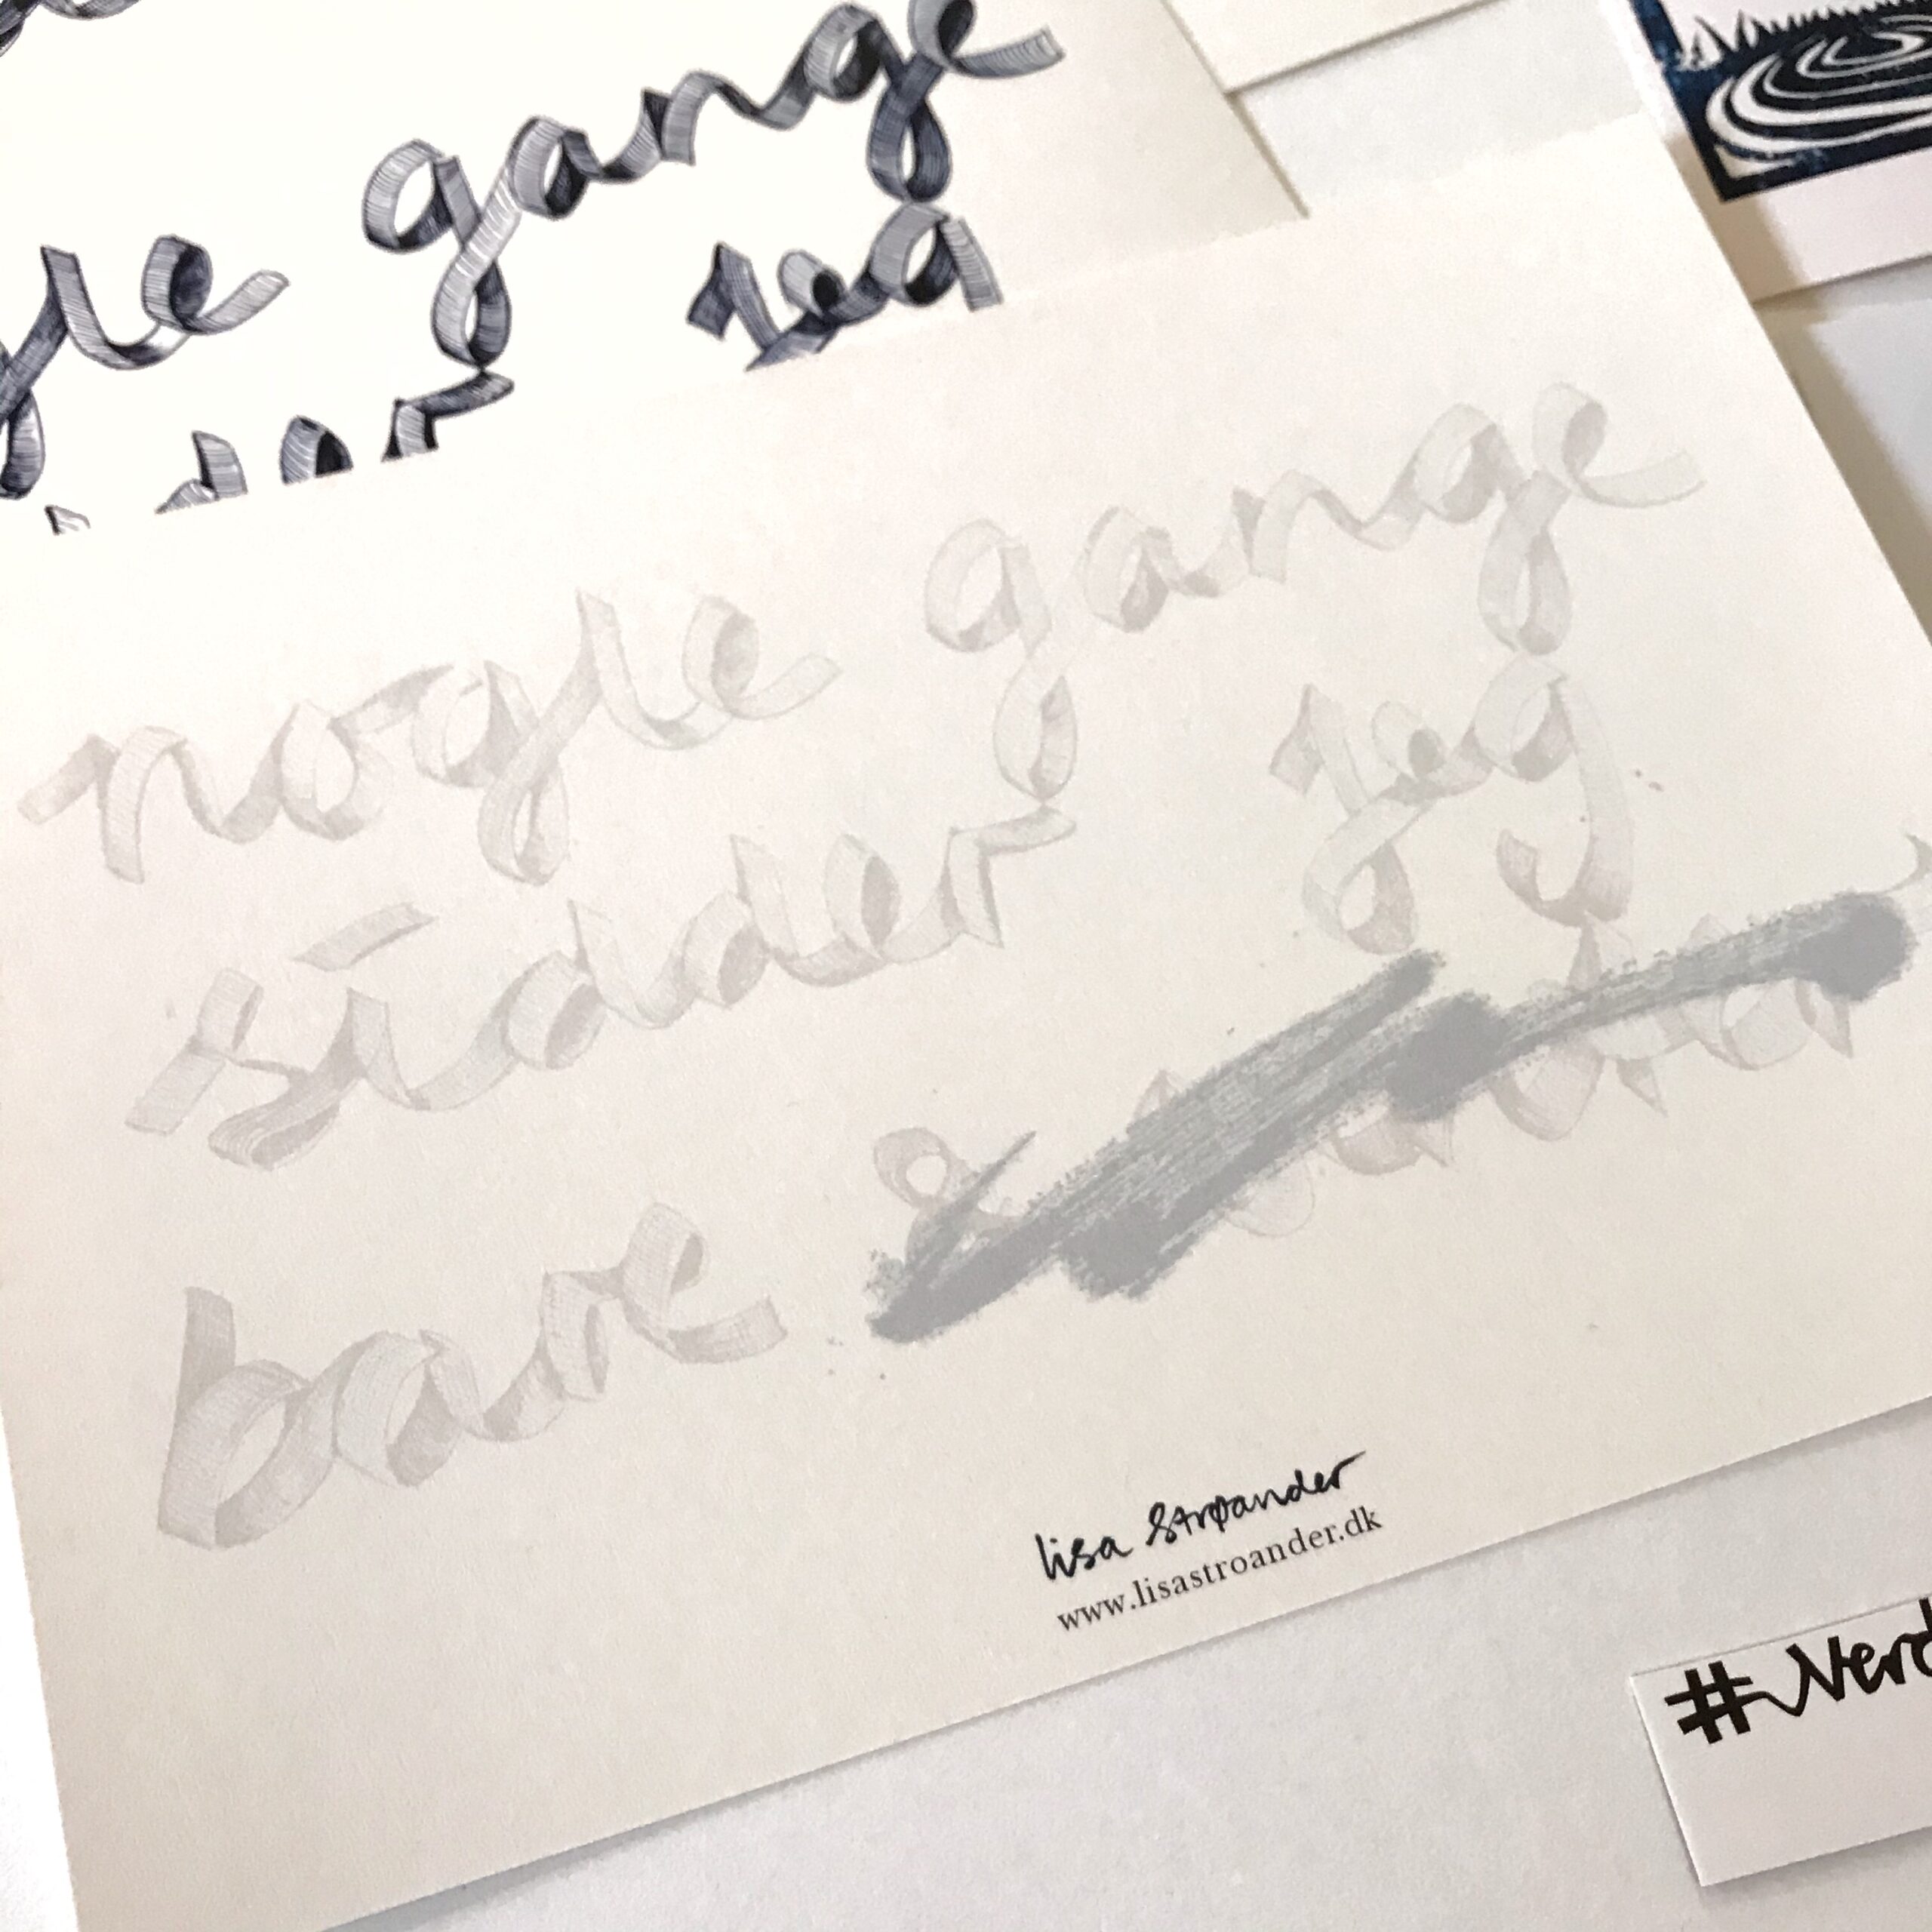 gange
jeg
nogle gange
sidder jeg
bare &
lisa Strøander
www.lisastroander.dk